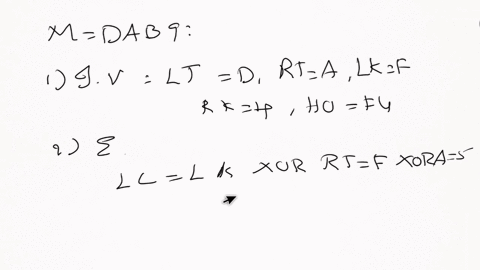 M = DAB9:
1) I.V = LT = D, RT=A, LK=F
RK=4, HO = F4
2) E
LC = L K XOR RT=F XOR A=5